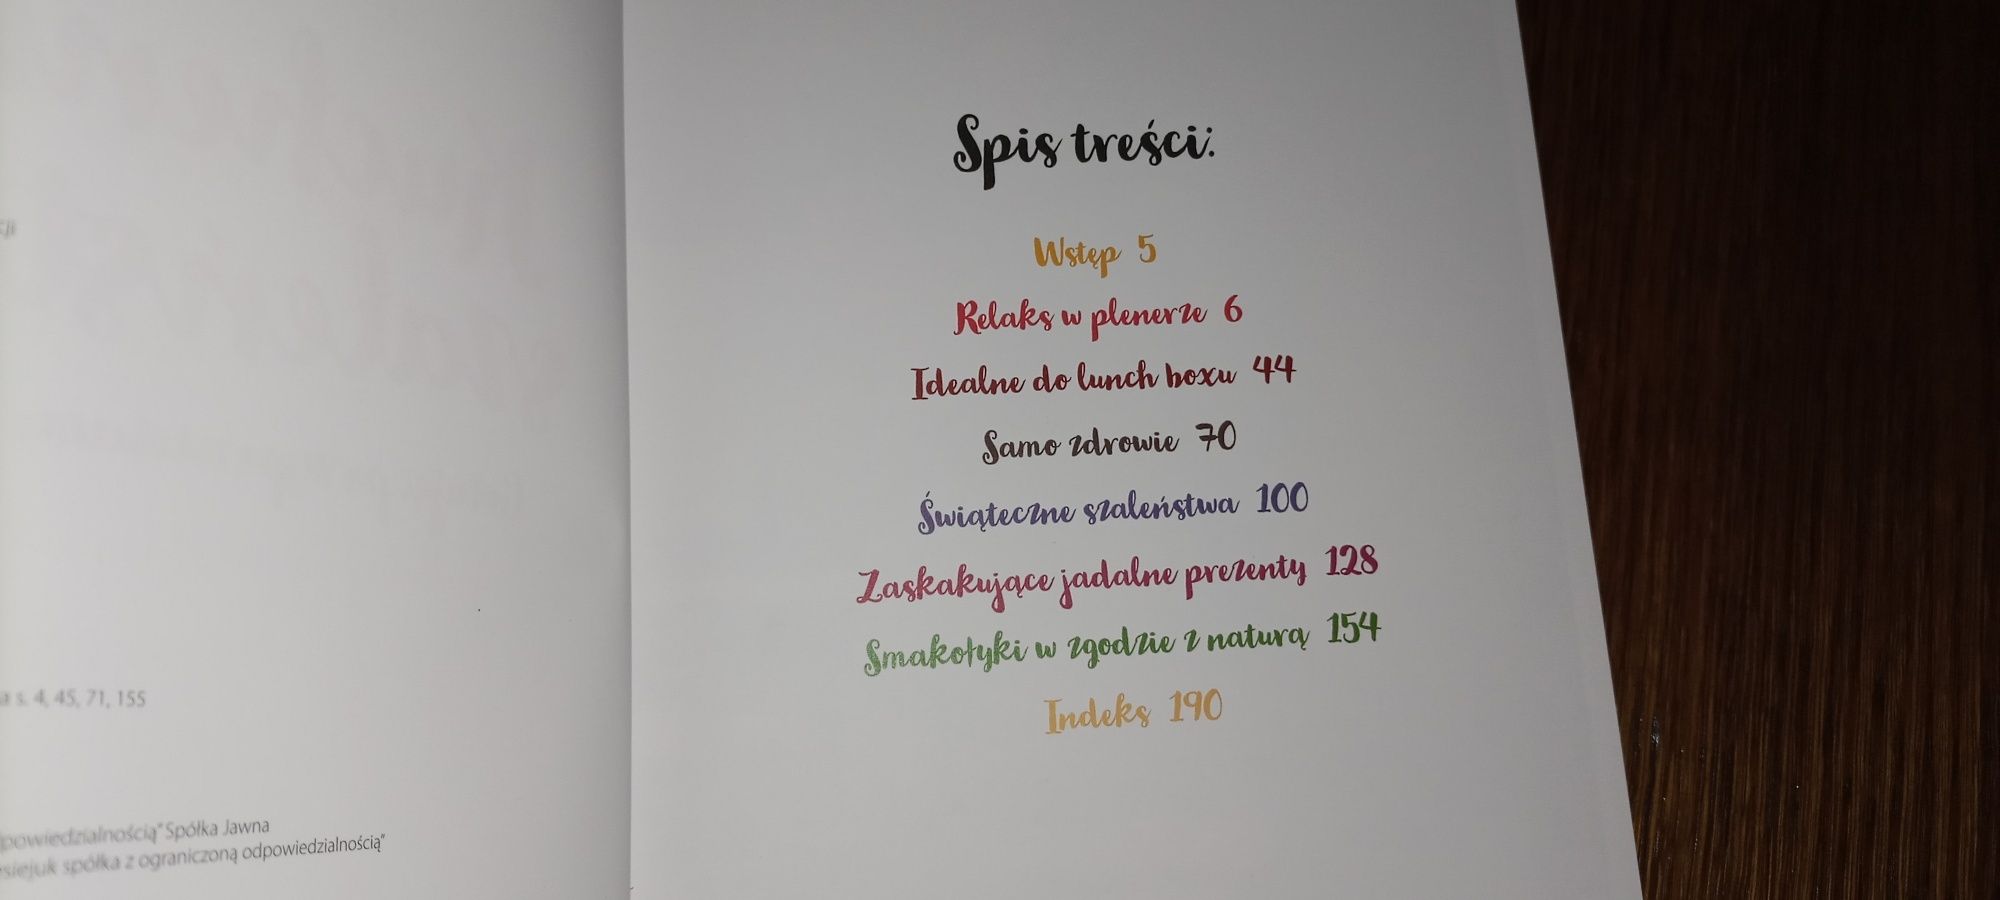 s. 4, 45, 71, 155
Spółka Jawna
spółka z ograniczoną odpowiedzialnością"
Spis treści:
Wstęp 5
Relaks w plenerze 6
Idealne do lunch boxu 44
Samo zdrowie 70
Świąteczne szaleństwa 100
Zaskakujące jadalne prezenty 128
Smakołyki w zgodzie z naturą 154
Indeks 190